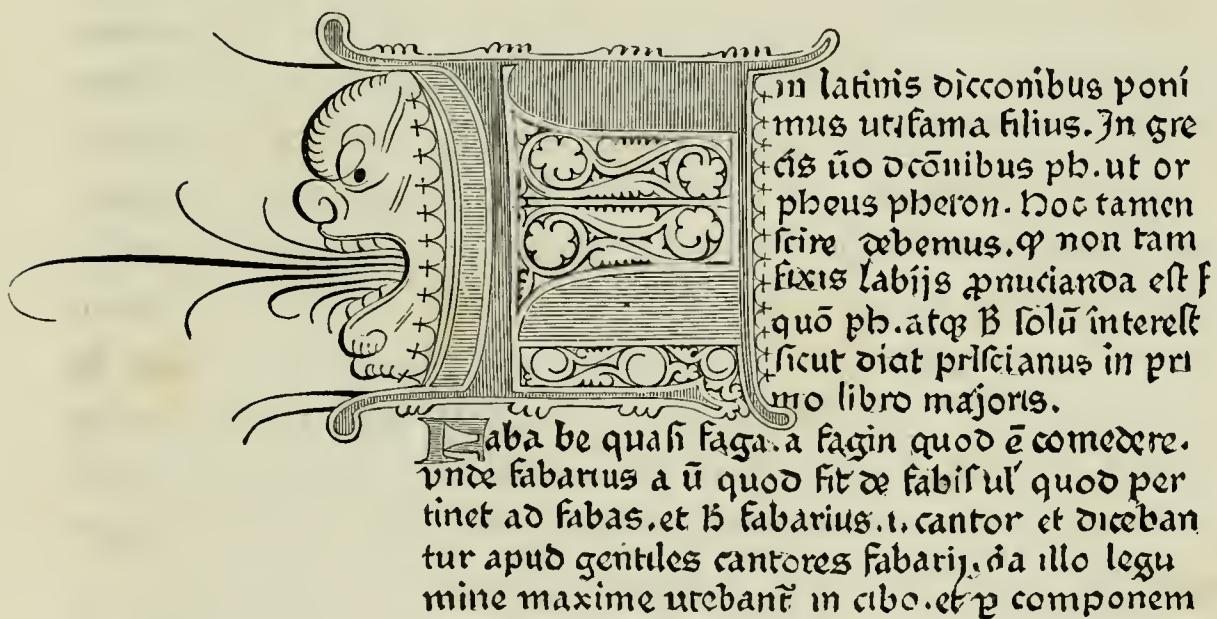 F in latinis dicconibus poni
mus ut fama filius. In gre
cis ūo dcōnibus ph. ut or
pheus pheron. Hoc tamen
scire debemus. ꝙ non tam
fixis labijs ꝓnucianda est f
quō ph. atqꝫ B solū interest
sicut dicit priscianus in pri
mo libro majoris.
Faba be quasi faga. a fagin quod ē comedere.
vnde fabarius a ū quod fit de fabis ul' quod per
tinet ad fabas. et B fabarius. i. cantor et diceban
tur apud gentiles cantores fabarij. illo legu
mine maxime utebant̄ in cibo. et ꝑ componem